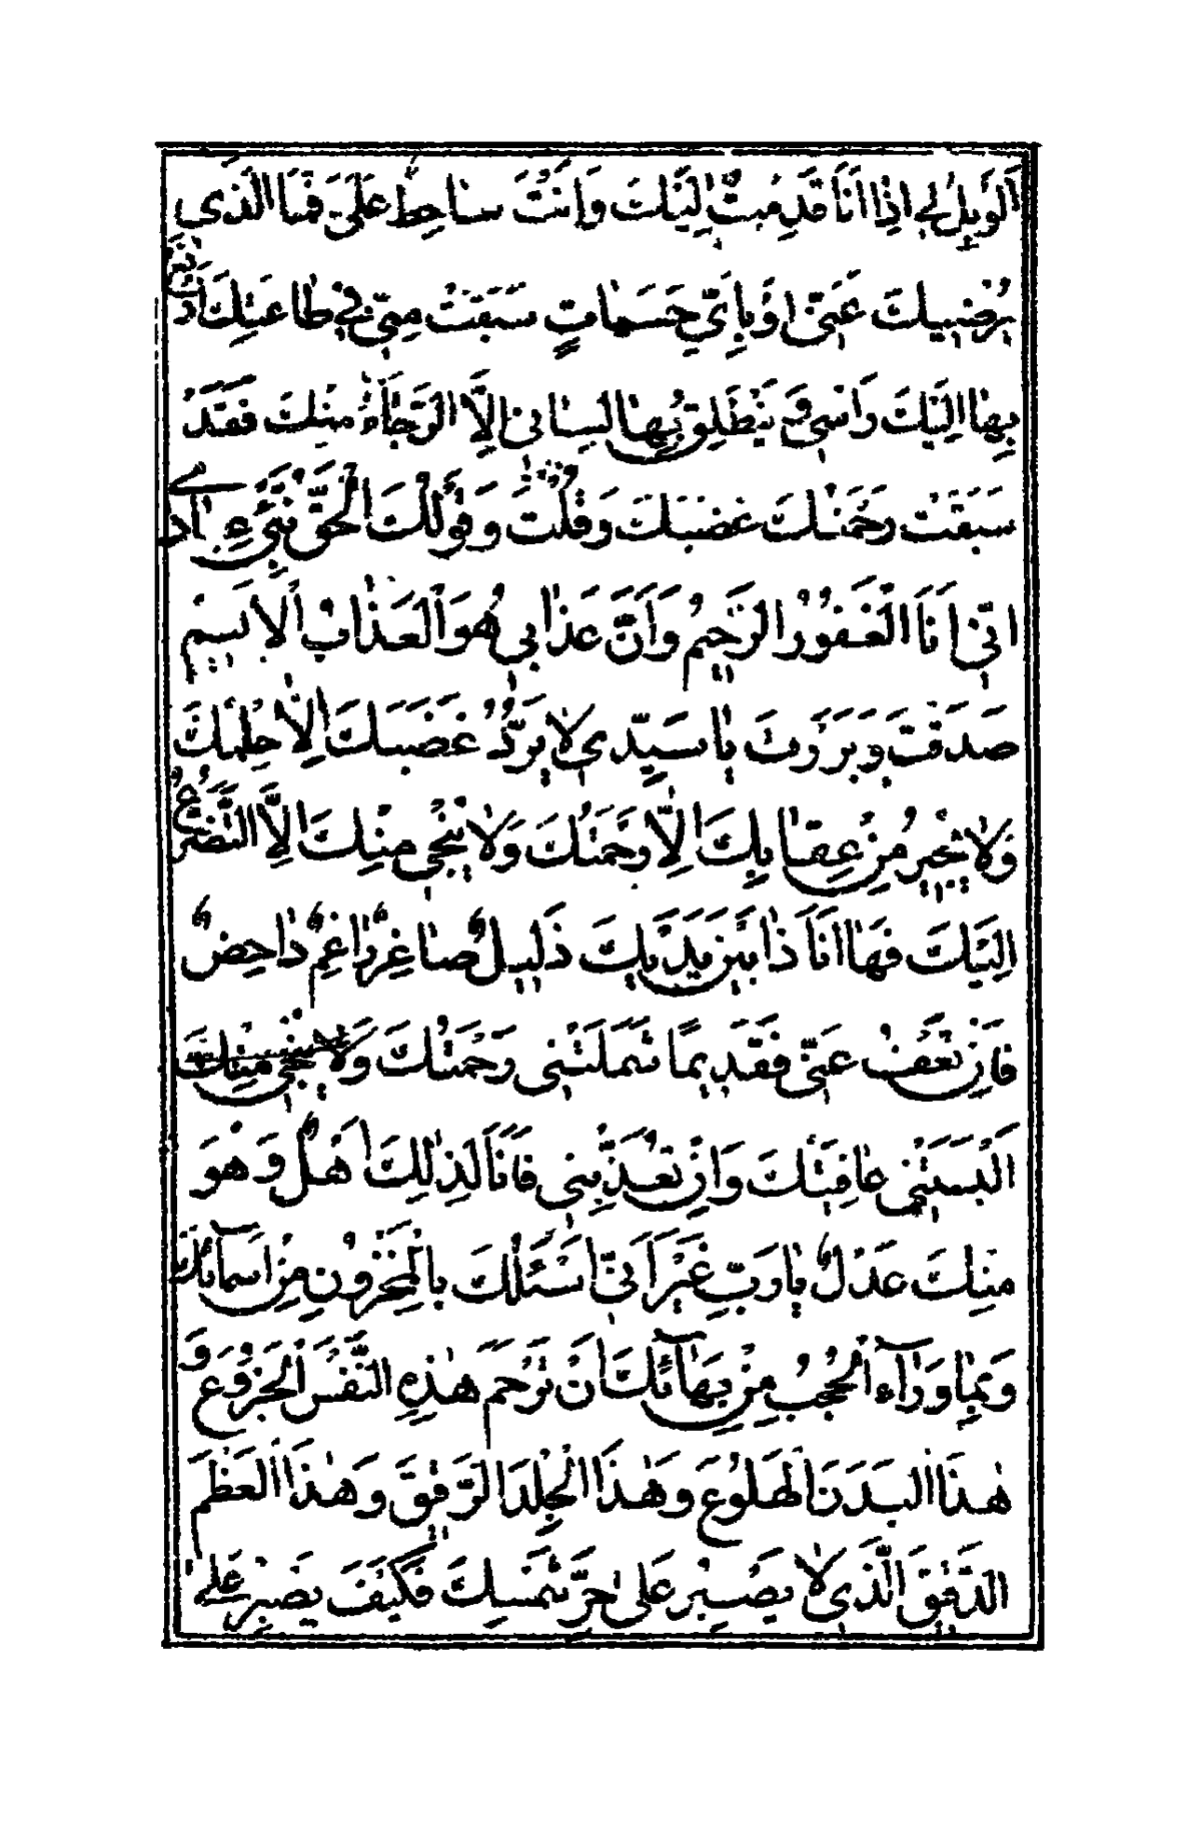 اَلْوَيْلُ لِى اِذٰا اَنَا قَدِمْتُ اِلَيْكَ وَاَنْتَ سٰاخِطٌ عَلَىَّ فَمَا الَّذى
يُرْضيكَ عَنّى اَوْ بِاَىِّ حَسَنٰاتٍ سَبَقَتْ مِنّى فى طٰاعَتِكَ اَرْفَعُ
بِهٰا اِلَيْكَ رَاْسى وَ يَنْطَلِقُ بِهٰا لِسٰانى اِلَّا الرَّجٰاۤءُ مِنْكَ فَقَدْ
سَبَقَتْ رَحْمَتُكَ غَضَبَكَ وَقُلْتَ وَقَوْلُكَ الْحَقُّ نَبِّئْ عِبٰادى
اَنّى اَنَا الْغَفُورُ الرَّحيمُ وَاَنَّ عَذٰابى هُوَ الْعَذٰابُ الْاَليمُ
صَدَقْتَ وَبَرَرْتَ يٰا سَيِّدى لٰا يَرُدُّ غَضَبَكَ اِلّٰا حِلْمُكَ
وَلٰا يُجيرُ مِنْ عِقٰابِكَ اِلّٰا رَحْمَتُكَ وَلٰا يُنْجى مِنْكَ اِلَّا التَّضَرُّعُ
اِلَيْكَ فَهٰا اَنَا ذٰا بَيْنَ يَدَيْكَ ذَليلٌ صٰاغِرٌ رٰاغِمٌ دٰاحِضٌ
فَاِنْ تَعْفُ عَنّى فَقَديمًا شَمَلَتْنى رَحْمَتُكَ وَلٰا يُنْجى مِنْكَ
اَلْبَسْتَنى عٰافِيَتَكَ وَاِنْ تُعَذِّبْنى فَاَنَا لِذٰلِكَ اَهْلٌ وَهُوَ
مِنْكَ عَدْلٌ يٰا رَبِّ غَيْرَ اَنّى اَسْئَلُكَ بِالْمَخْزُونِ مِنْ اَسْمٰاۤئِكَ
وَبِمٰا وَرٰاۤءَ الْحُجُبِ مِنْ بَهٰاۤئِكَ اَنْ تَرْحَمَ هٰذِهِ النَّفْسَ الْجَزُوعَ وَ
هٰذَا الْبَدَنَ الْهَلُوعَ وَهٰذَا الْجِلْدَ الرَّقيقَ وَهٰذَا الْعَظْمَ
الدَّقيقَ الَّذى لٰا يَصْبِرُ عَلٰى حَرِّ شَمْسِكَ فَكَيْفَ يَصْبِرُ عَلٰى